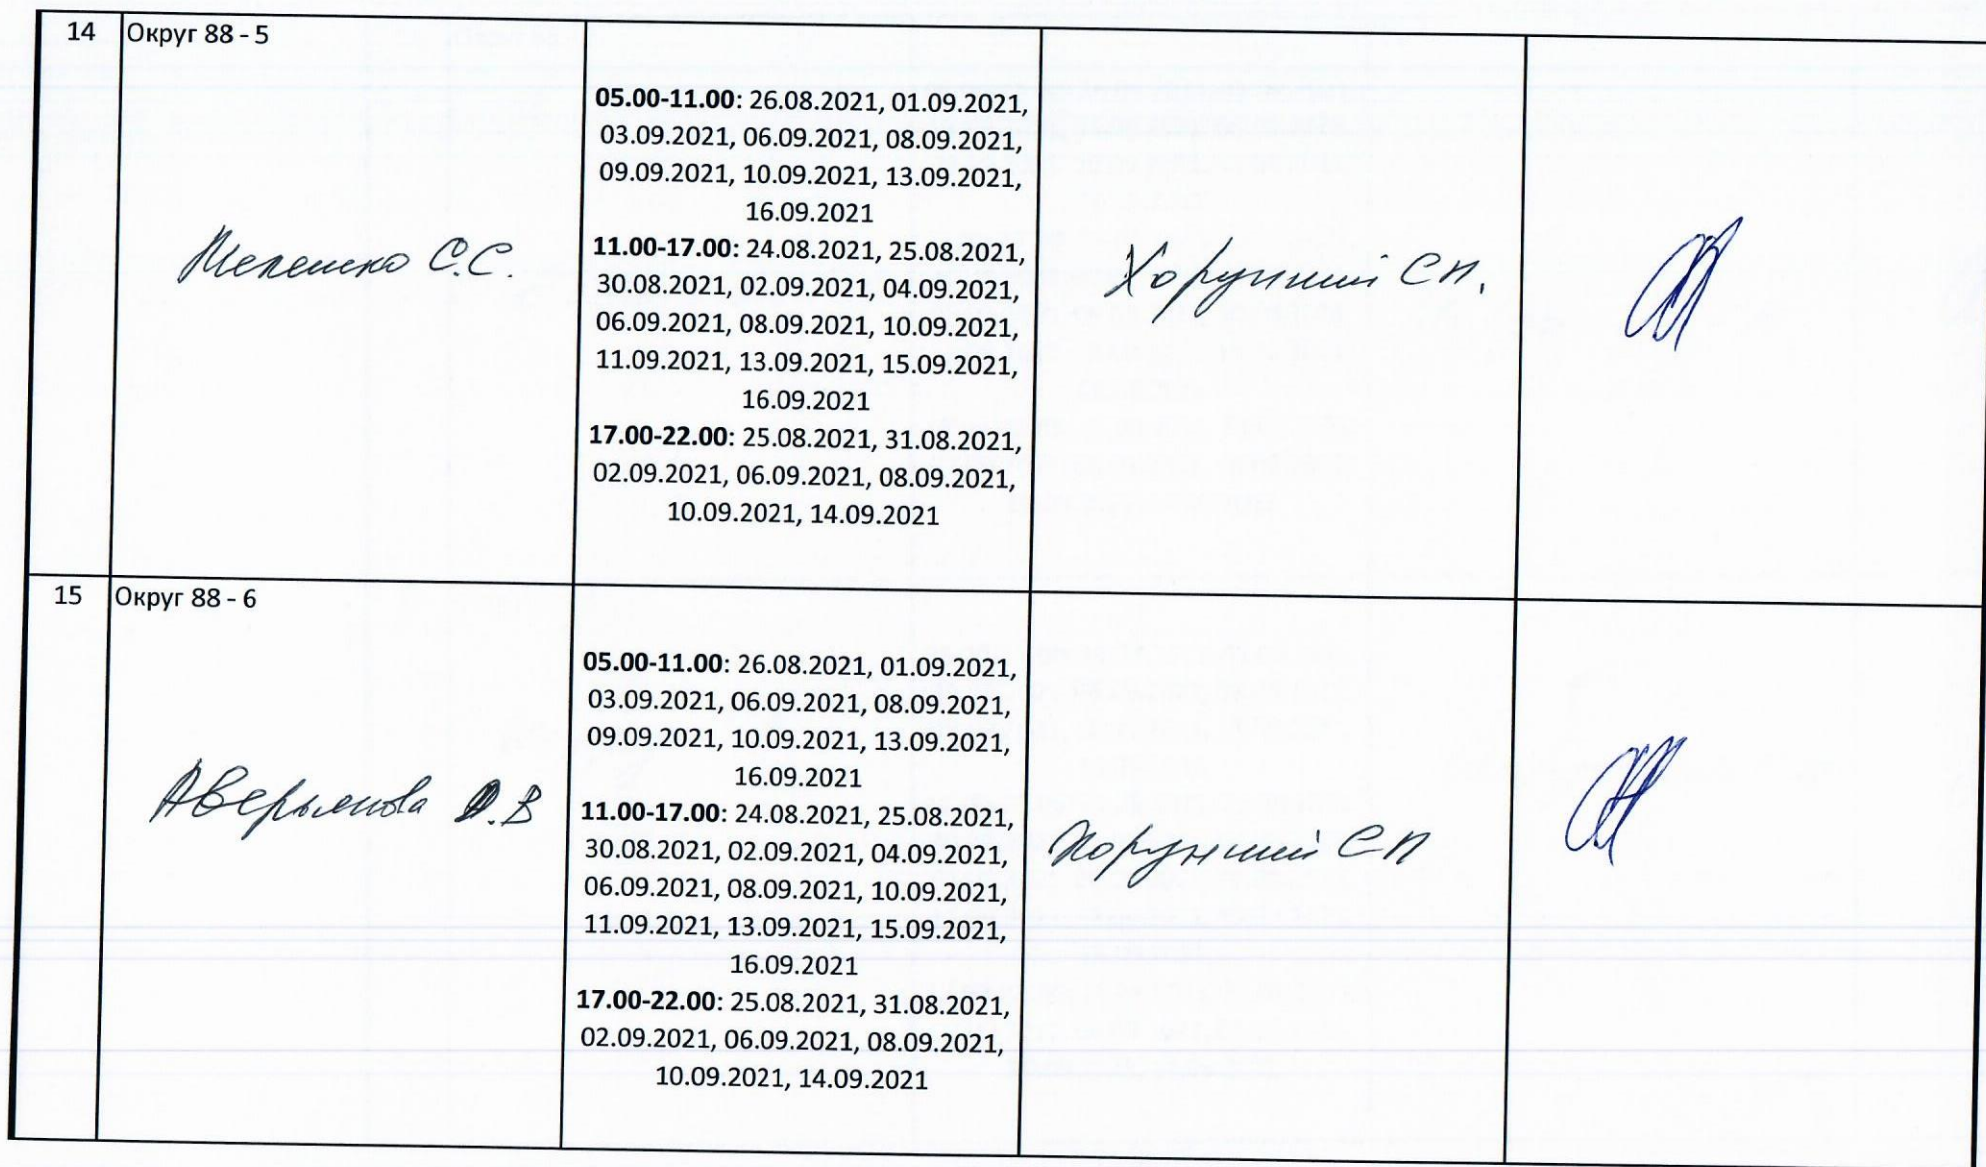 14 Округ 88 - 5
05.00-11.00: 26.08.2021, 01.09.2021,
03.09.2021, 06.09.2021, 08.09.2021,
09.09.2021, 10.09.2021, 13.09.2021,
16.09.2021
11.00-17.00: 24.08.2021, 25.08.2021,
30.08.2021, 02.09.2021, 04.09.2021,
06.09.2021, 08.09.2021, 10.09.2021,
11.09.2021, 13.09.2021, 15.09.2021,
16.09.2021
17.00-22.00: 25.08.2021, 31.08.2021,
02.09.2021, 06.09.2021, 08.09.2021,
10.09.2021, 14.09.2021
С.С.
Хорунжий С.П.
15 Округ 88 - 6
05.00-11.00: 26.08.2021, 01.09.2021,
03.09.2021, 06.09.2021, 08.09.2021,
09.09.2021, 10.09.2021, 13.09.2021,
16.09.2021
11.00-17.00: 24.08.2021, 25.08.2021,
30.08.2021, 02.09.2021, 04.09.2021,
06.09.2021, 08.09.2021, 10.09.2021,
11.09.2021, 13.09.2021, 15.09.2021,
16.09.2021
17.00-22.00: 25.08.2021, 31.08.2021,
02.09.2021, 06.09.2021, 08.09.2021,
10.09.2021, 14.09.2021
Аверьянова О.В
Хорунжий СП